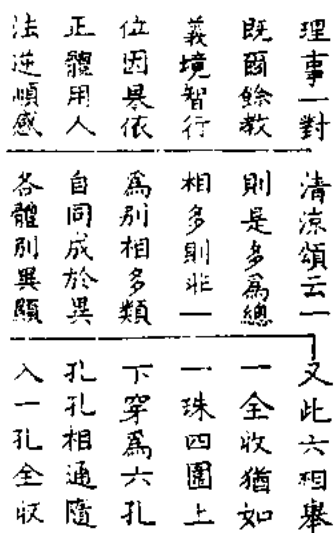 理事一對
既爾餘教
義境智行
位因果依
正體用人
法逆順感
清涼頌云一
則是多爲總
相多則非一
爲別相多類
自同成於異
各體別異顯
又此六相舉
一全收猶如
一珠四圍上
下穿爲六孔
孔孔相通隨
入一孔全收